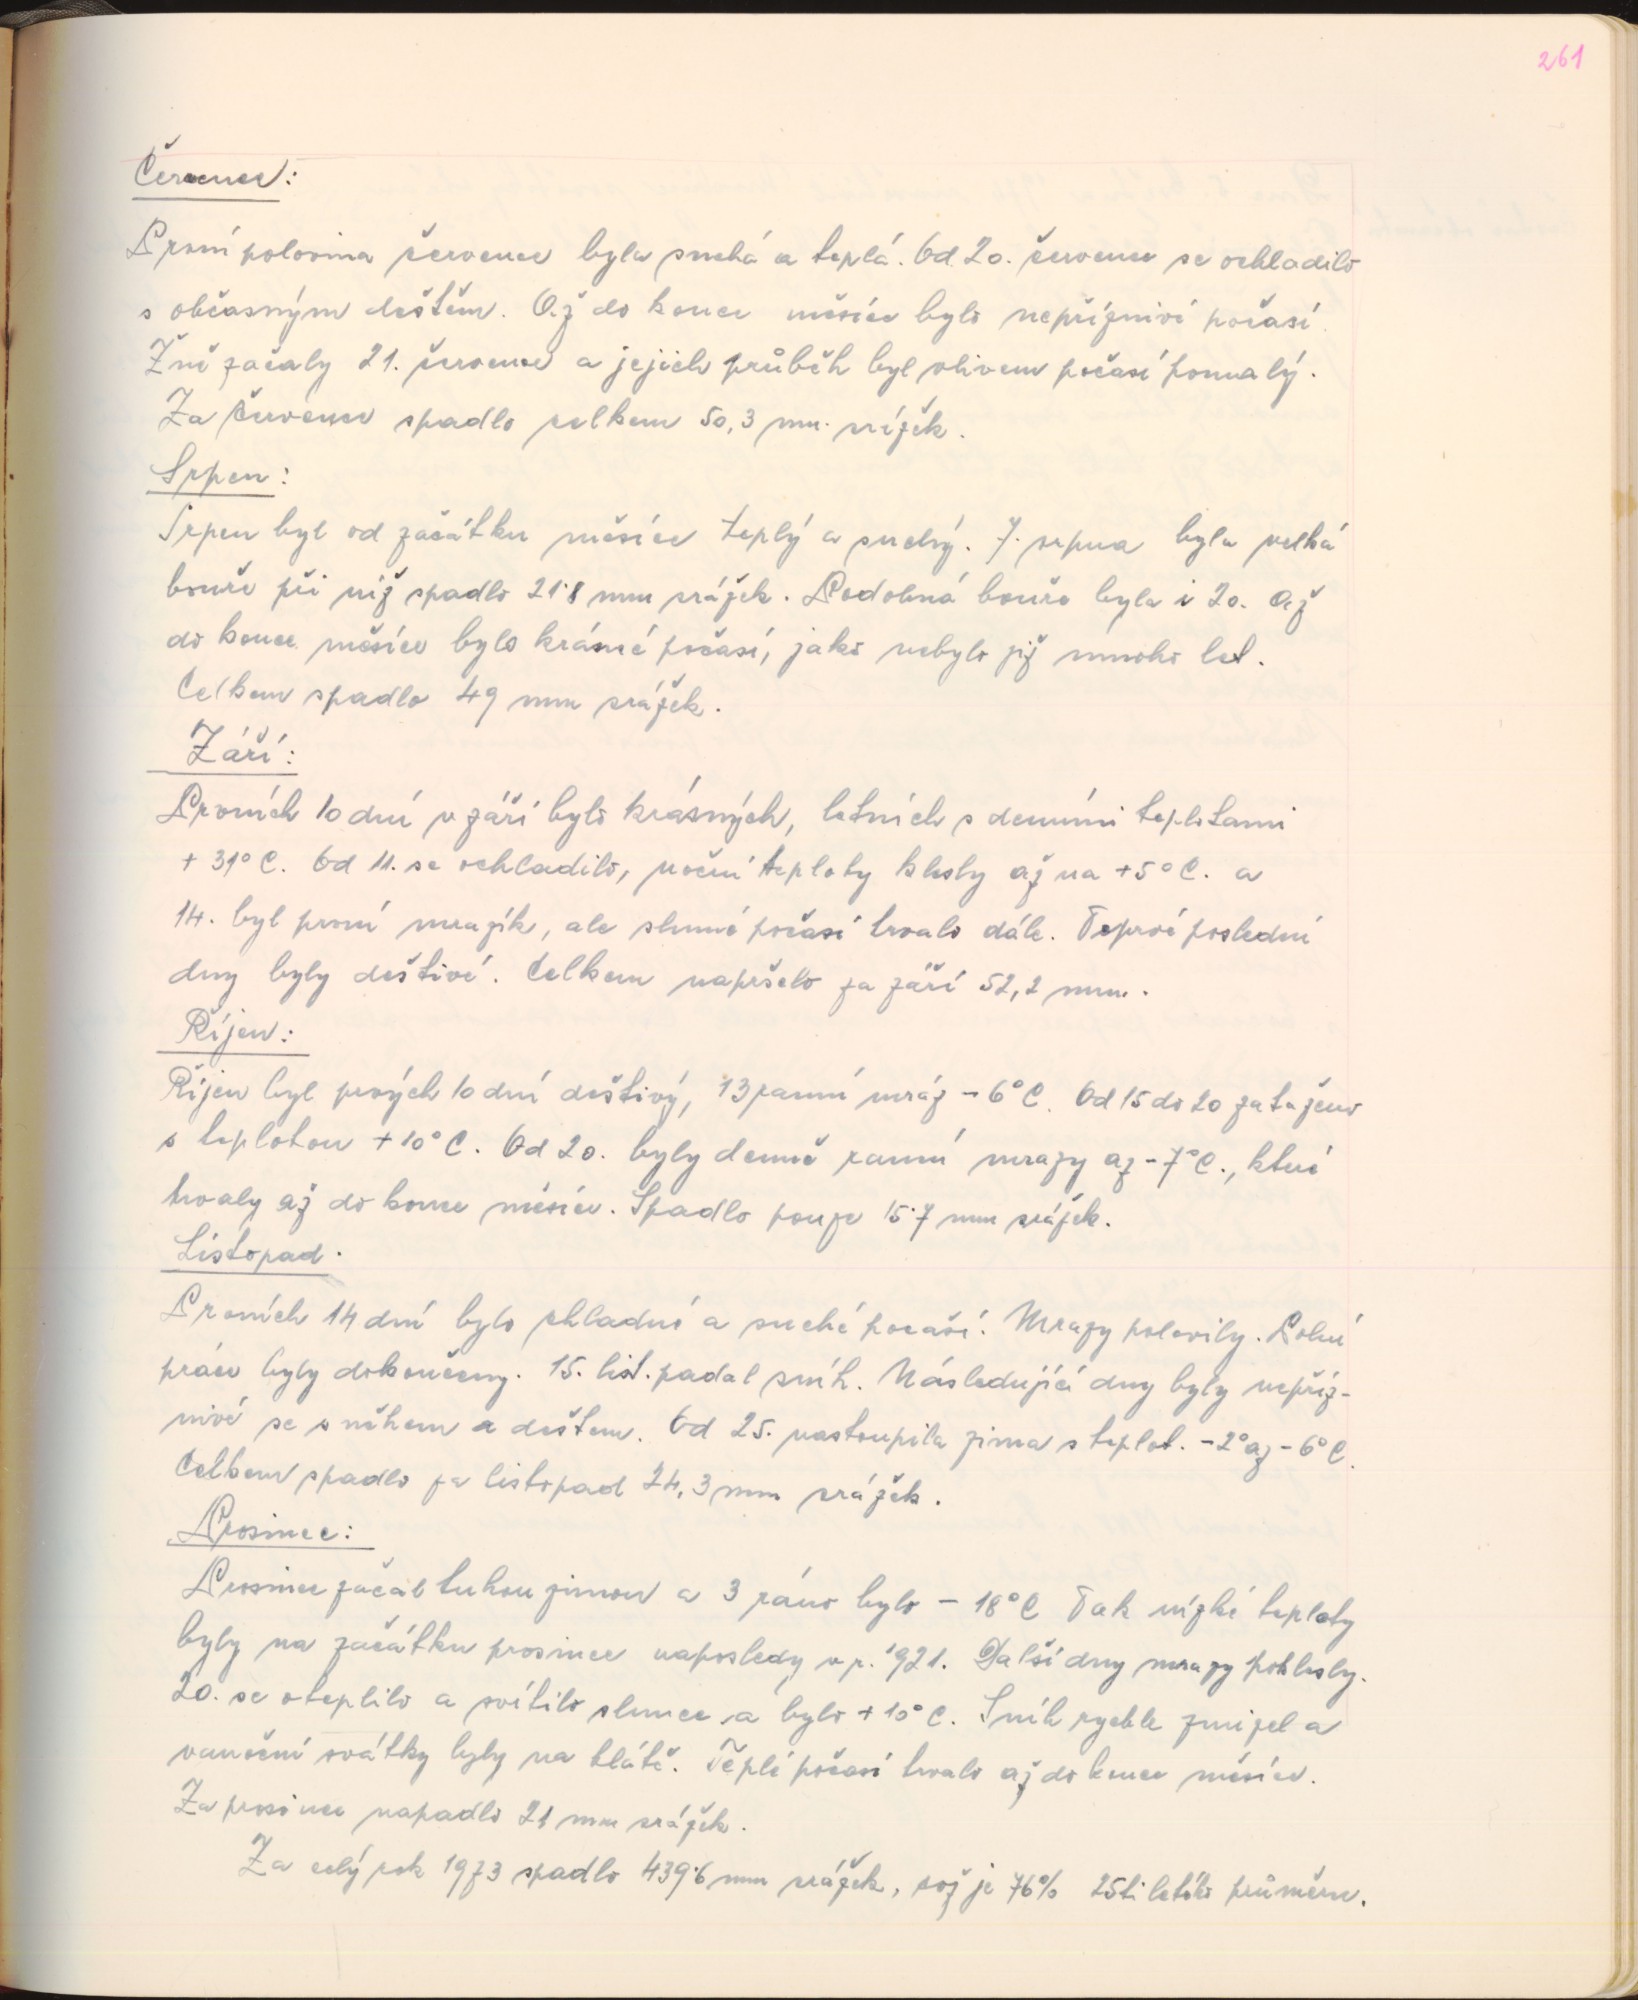 261
Červenec:
První polovina července byla suchá a teplá. Od 20. července se ochladilo
s občasným deštěm. Až do konce měsíce bylo nepříznivé počasí.
Žně začaly 21. července a jejich průběh byl vlivem počasí pomalý.
Za červenec spadlo celkem 50,3 mm. srážek.
Srpen:
Srpen byl od začátku měsíce teplý a suchý. 7. srpna byla velká
bouře při níž spadlo 21·8 mm srážek. Podobná bouře byla i 20. Až
do konce měsíce bylo krásné počasí, jako nebylo již mnoho let.
Celkem spadlo 49 mm srážek.
Září:
Prvních 10 dní v září bylo krásných, letních s denními teplotami
+ 31° C. Od 11. se ochladilo, noční teploty klesly až na +5° C. a
14. byl první mrazík, ale slunné počasí trvalo dále. Teprve poslední
dny byly deštivé. Celkem napršelo za září 52,2 mm.
Říjen:
Říjen byl prvých 10 dní deštivý, 13 ranní mráz - 6° C. Od 15 do 20 zataženo
s teplotou + 10° C. Od 20. byly denně ranní mrazy až -7° C., které
trvaly až do konce měsíce. Spadlo pouze 15·7 mm srážek.
Listopad.
Prvních 14 dní bylo chladné a suché počasí. Mrazy polevily. Polní
práce byly dokončeny. 15. list. padal sníh. Následující dny byly nepříz-
nivé se sněhem a deštem. Od 25. nastoupila zima s teplot. -2° až - 6° C.
Celkem spadlo za listopad 24,3 mm srážek.
Prosinec:
Prosinec začal tuhou zimou a 3 ráno bylo - 18° C Tak nízké teploty
byly na začátku prosince naposledy v r. 1921. Další dny mrazy poklesly.
20. se oteplilo a svítilo slunce a bylo + 10° C. Sníh rychle zmizel a
vánoční svátky byly na blátě. Teplé počasí trvalo až do konce měsíce.
Za prosinec napadlo 21 mm srážek.
Za celý rok 1973 spadlo 439·6 mm srážek, což je 76% 25ti letého průměru.